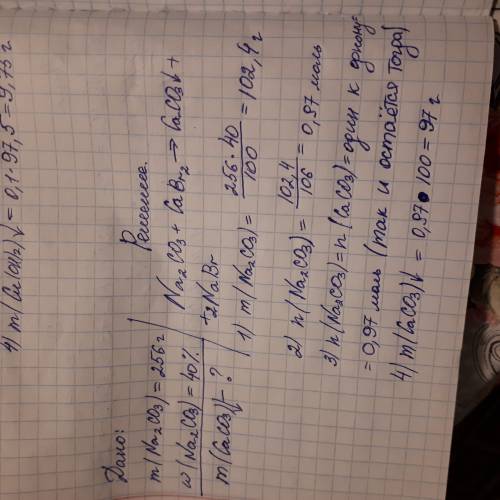 4) m(Cu(OH)2)↓ = 0,1·97,5 = 9,75 г
Дано:
m(Na2CO3) = 256 г
w(Na2CO3) = 40%
m(CaCO3)↓ - ?
Решение.
Na2CO3 + CaBr2 → CaCO3↓ +
+2NaBr
1) m(Na2CO3) = 256·40/100 = 102,4 г
2) n(Na2CO3) = 102,4/106 = 0,97 моль
3) n(Na2CO3) = n(CaCO3) = один к одному =
= 0,97 моль (так и остаётся тогда)
4) m(CaCO3)↓ = 0,97·100 = 97 г